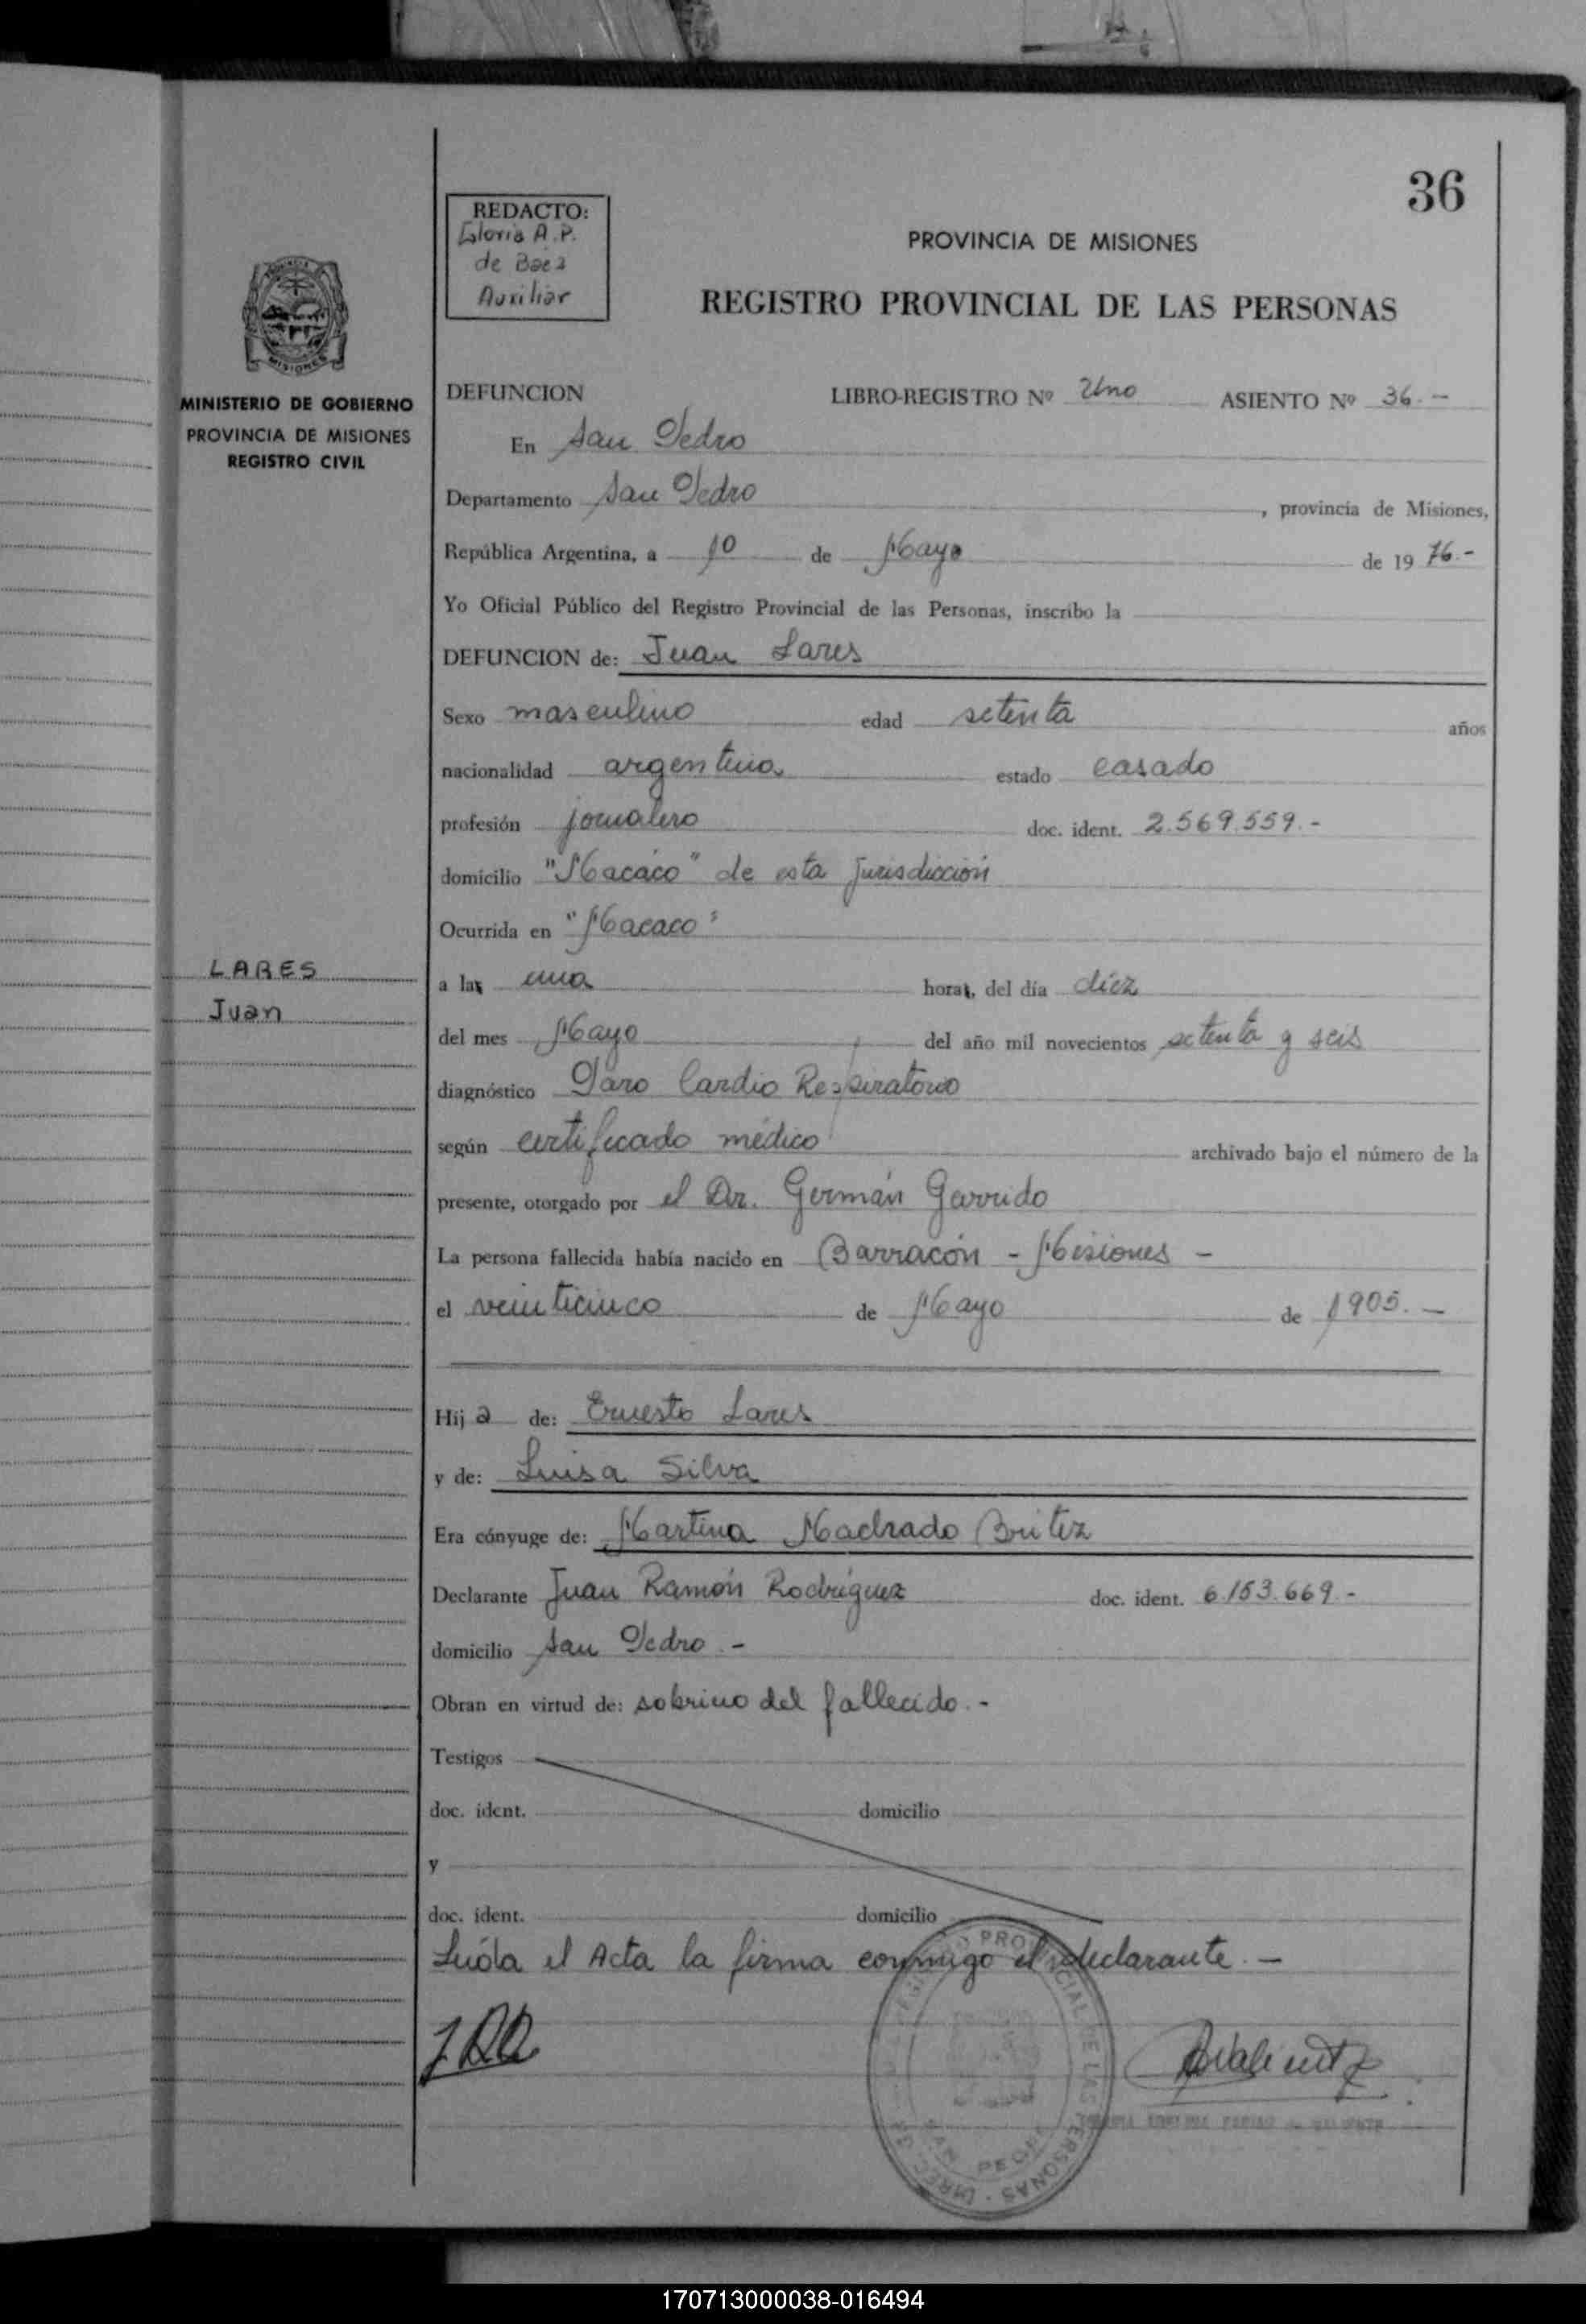 36
REDACTO:
Gloria A. P.
de Baez
Auxiliar
PROVINCIA DE MISIONES
REGISTRO PROVINCIAL DE LAS PERSONAS
MISIONES
MINISTERIO DE GOBIERNO
PROVINCIA DE MISIONES
REGISTRO CIVIL
DEFUNCION LIBRO-REGISTRO Nº Uno ASIENTO Nº 36.-
En San Pedro
Departamento San Pedro, provincia de Misiones,
República Argentina, a 10 de Mayo de 1976.-
Yo Oficial Público del Registro Provincial de las Personas, inscribo la
DEFUNCION de: Juan Lares
Sexo masculino edad setenta años
nacionalidad argentina estado casado
profesión jornalero doc. ident. 2.569.559.-
domicilio "Macaco" de esta jurisdicción
Ocurrida en "Macaco"
LARES
Juan
a las una horas, del día diez
del mes Mayo del año mil novecientos setenta y seis
diagnóstico Paro Cardio Respiratorio
según certificado médico archivado bajo el número de la
presente, otorgado por el Dr. Germán Garrido
La persona fallecida había nacido en Barracón - Misiones -
el veinticinco de Mayo de 1905.-
Hij o de: Ernesto Lares
y de: Luisa Silva
Era cónyuge de: Martina Machado Britez
Declarante Juan Ramón Rodríguez doc. ident. 6.153.669.-
domicilio San Pedro.-
Obran en virtud de: sobrino del fallecido.-
Testigos
doc. ident. domicilio
y
doc. ident. domicilio
Leída el Acta la firma conmigo el declarante.-
JRR
170713000038-016494